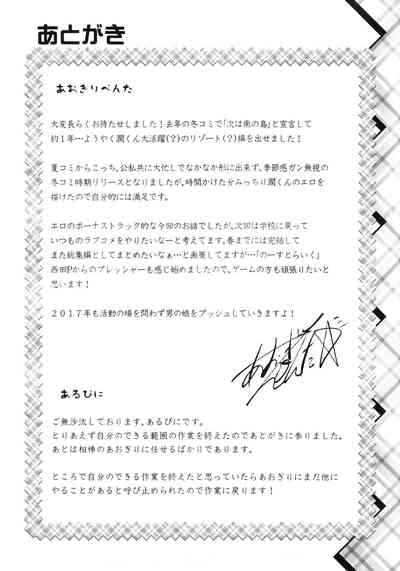 あとがき
あおきりぺんた
大変長らくお待たせしました！去年の冬コミで「次は南の島」と宣言して
約1年…ようやく潤くん大活躍(？)のリゾート(？)編を出せました！
夏コミからこっち、公私共に大忙しでなかなか形に出来ず、季節感ガン無視の
冬コミ時期リリースとなりましたが、時間かけた分みっちり潤くんのエロを
描けたので自分的には満足です。
エロのボーナストラック的な今回のお話でしたが、次回は学校に戻って
いつものラブコメをやりたいなーと考えてます。春までには完結して
また総集編としてまとめたいなぁ…と画策してますが…「のーすとらいく」
西田Pからのプレッシャーも感じ始めましたので、ゲームの方も頑張りたいと
思います！
2017年も活動の場を問わず男の娘をプッシュしていきますよ！
あるぴに
ご無沙汰しております。あるぴにです。
とりあえず自分のできる範囲の作業を終えたのであとがきに参りました。
あとは相棒のあおぎりに任せるばかりであります。
ところで自分のできる作業を終えたと思っていたらあおぎりにまだ他に
やることがあると呼び止められたので作業に戻ります！